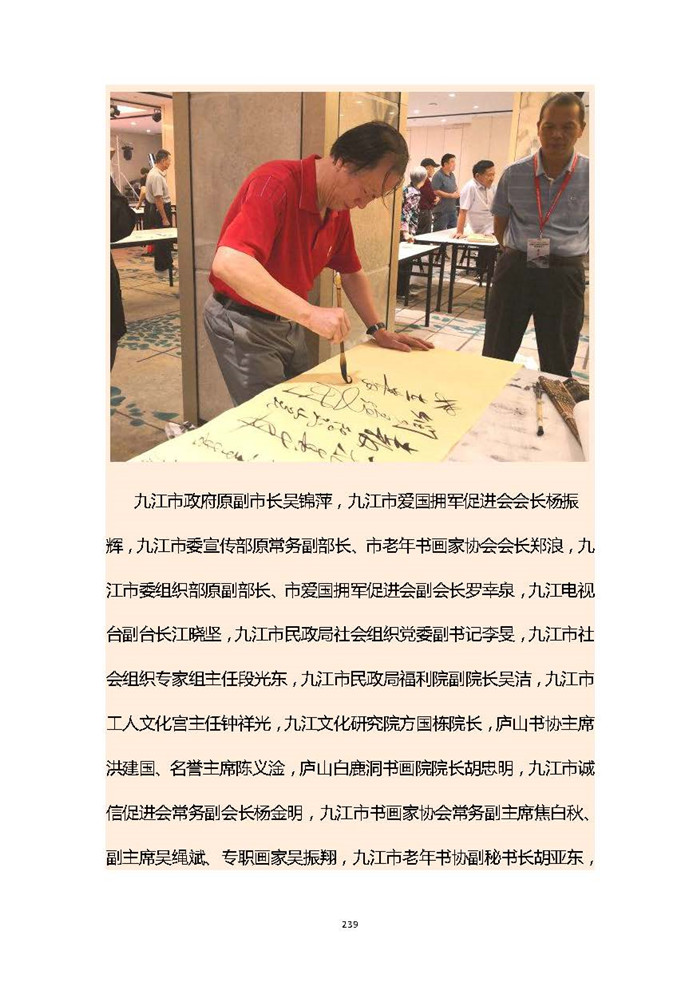 九江市政府原副市长吴锦萍，九江市爱国拥军促进会会长杨振
辉，九江市委宣传部原常务副部长、市老年书画家协会会长郑浪，九
江市委组织部原副部长、市爱国拥军促进会副会长罗幸泉，九江电视
台副台长江晓坚，九江市民政局社会组织党委副书记李旻，九江市社
会组织专家组主任段光东，九江市民政局福利院副院长吴洁，九江市
工人文化宫主任钟祥光，九江文化研究院方国栋院长，庐山书协主席
洪建国、名誉主席陈义淦，庐山白鹿洞书画院院长胡忠明，九江市诚
信促进会常务副会长杨金明，九江市书画家协会常务副主席焦白秋、
副主席吴绳斌、专职画家吴振翔，九江市老年书协副秘书长胡亚东，
239